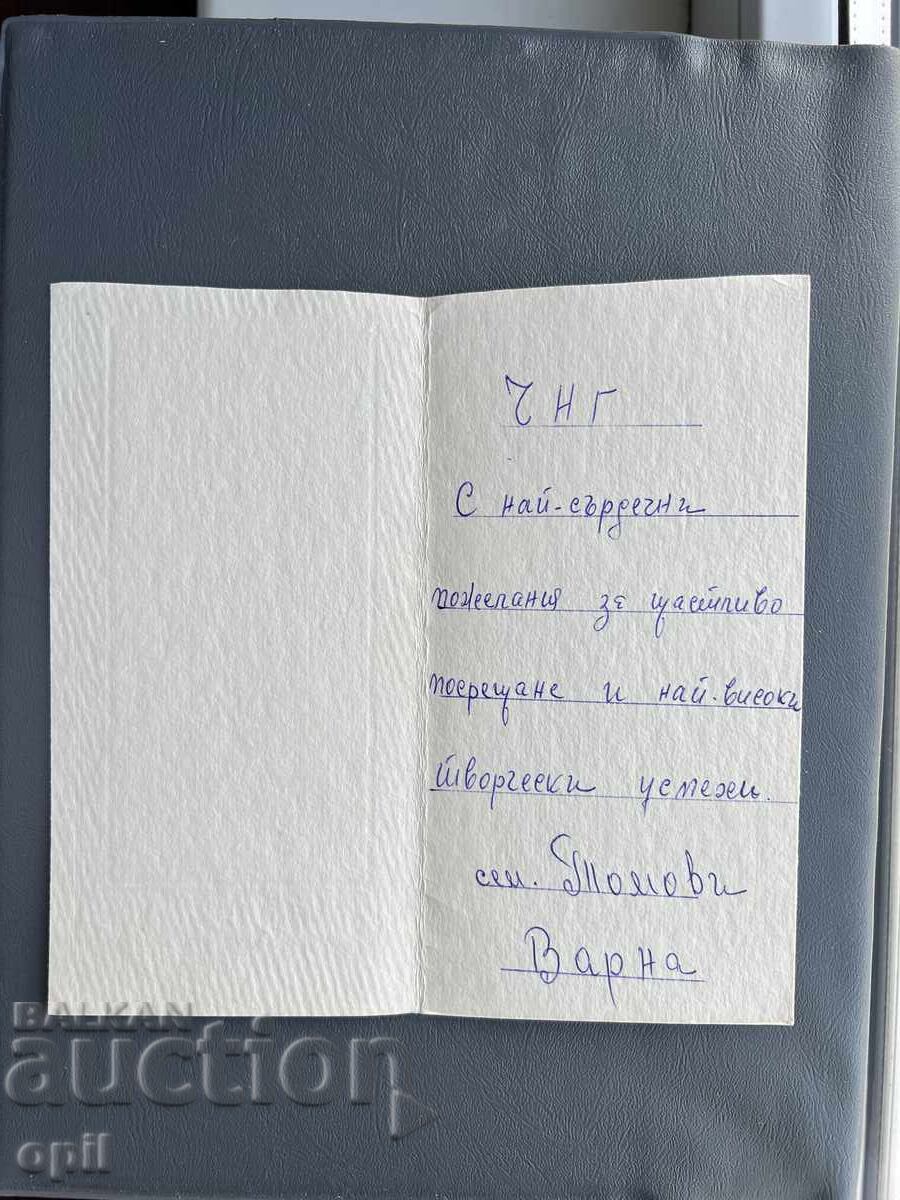 ЧНГ
С най-сърдечни
пожелания за щастливо
посрещане и най-високи
творчески успехи.
сем. Томови
Варна
BALKAN
auction
opil